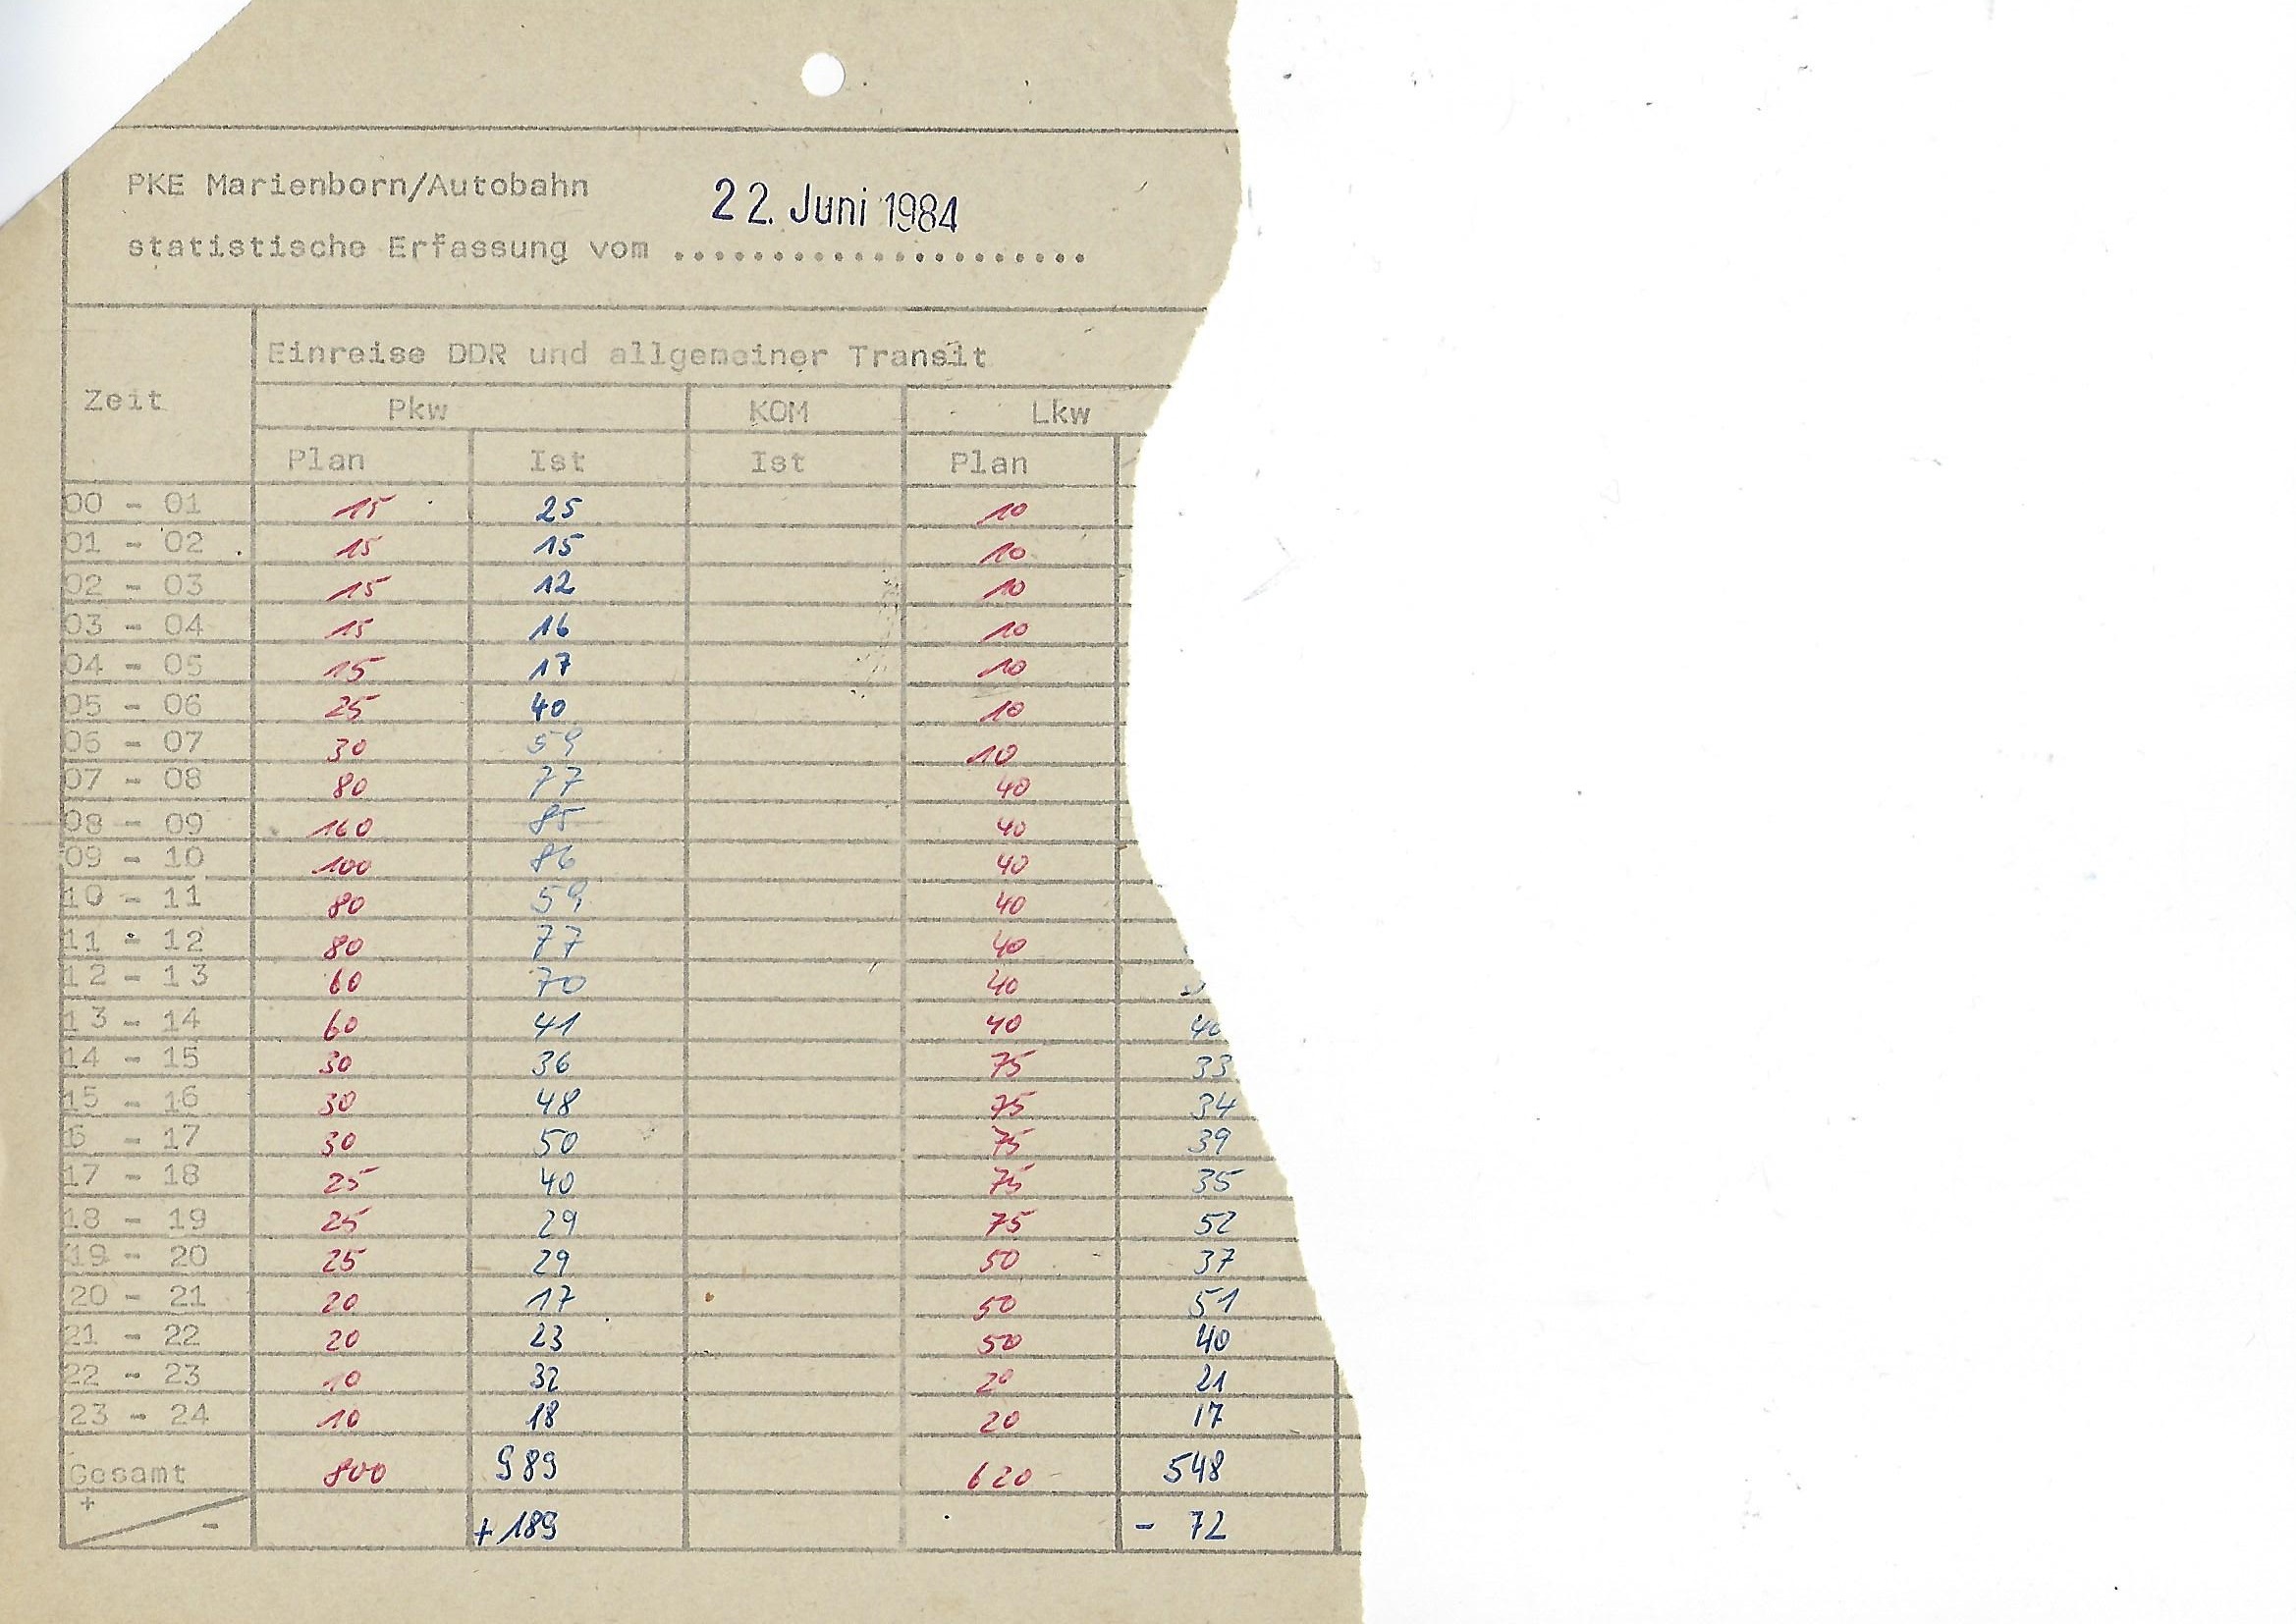 PKE Marienborn/Autobahn
22. Juni 1984
statistische Erfassung vom .....................
Zeit
Einreise DDR und allgemeiner Transit
Pkw KOM Lkw
Plan Ist Ist Plan
00 - 01 15 25 10
01 - 02 15 15 10
02 - 03 15 12 10
03 - 04 15 16 10
04 - 05 15 17 10
05 - 06 25 40 10
06 - 07 30 59 10
07 - 08 80 77 40
08 - 09 160 85 40
09 - 10 100 86 40
10 - 11 80 59 40
11 - 12 80 77 40
12 - 13 60 70 40
13 - 14 60 41 40 40
14 - 15 30 36 75 33
15 - 16 30 48 75 34
6 - 17 30 50 75 39
17 - 18 25 40 75 35
18 - 19 25 29 75 52
19 - 20 25 29 50 37
20 - 21 20 17 50 51
21 - 22 20 23 50 40
22 - 23 10 32 20 21
23 - 24 10 18 20 17
Gesamt 800 989 620 548
+ - + 189 - 72